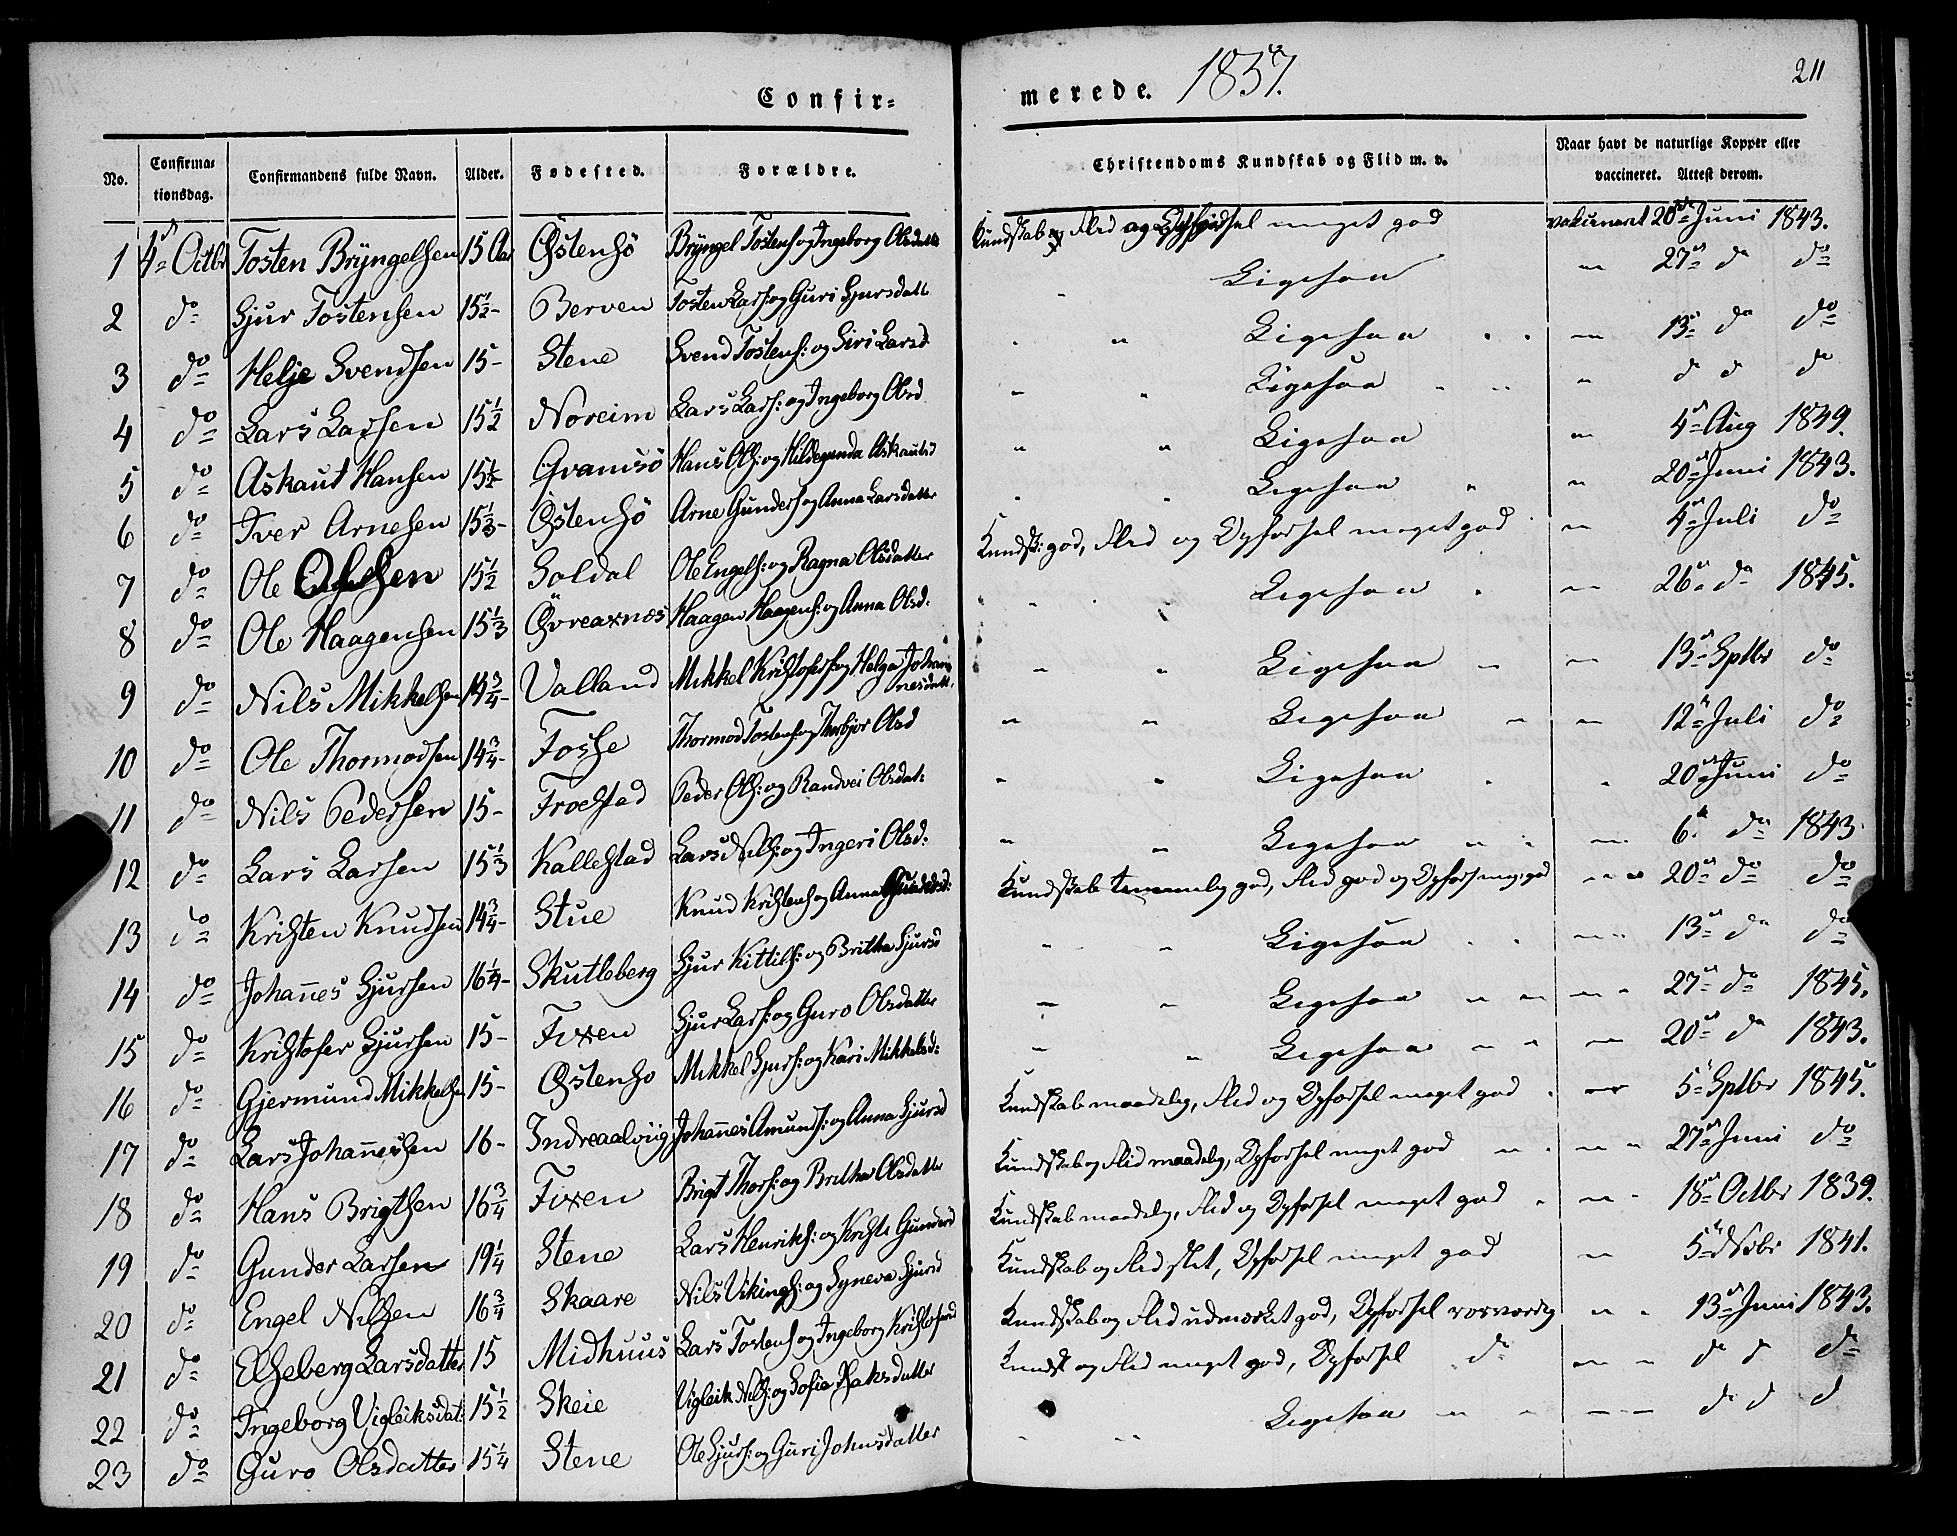 Confir= merede. 1857. 211
No. Confirmationsdag. Confirmandens fulde Navn. Alder. Fødested. Forældre. Christendoms Kundskab og Flid m. v. Naar havt de naturlige Kopper eller vaccineret. Attest derom.
1 4de Octbr Tosten Bryngelsen 15 Aar Østensö Bryngel Tostens: og Ingeborg Olsdatter Kundskab og Flid og Opførsel meget god vakcineret 20de Juni 1843.
2 do Sjur Tostensen 15 1/2 - Berven Tosten Lars: og Guri Sjursdatt Ligesaa " 27de do do
3 do Helje Svendsen 15 - Stene Svend Tostens: og Siri Larsd " Ligesaa " 13de do do
4 do Lars Larsen 15 1/2 Noreim Lars Lars: og Ingeborg Olsd " " Ligesaa " do do do
5 do Askaut Hansen 15 1/2 Qvamsö Hans Ols: og Hildegunda Askautsd " " Ligesaa " 4de Aug 1849.
6 do Iver Arnesen 15 1/3 - Østensö Arne Gunders: og Anna Larsdatter " " Ligesaa " " 20de Juni 1843.
7 do Ole Olsen 15 1/2 Soldal Ole Engels: og Ragna Olsdatter Kundsk: god, Flid og Opførsel meget god " 4de Juli do
8 do Ole Haagensen 15 1/3 Øvreaxnes Haagen Haagens: og Anna Olsd: " " Ligesaa " 26de do 1845.
9 do Nils Mikkelsen 14 3/4 - Valland Mikkel Kristofers: og Helga Johannesdatt. " " Ligesaa " " 13de Sptbr do
10 do Ole Thormodsen 14 3/4 - Fosse Thormod Tostens: og Thorbjor Olsd " " Ligesaa " " 12te Juli do
11 do Nils Pedersen 15 - Froestad Peder Ols: og Randvei Olsdat: " " Ligesaa " " 20de Juni do
12 do Lars Larsen 15 1/3 Kallestad Lars Nils: og Ingeri Olsd: " " Ligesaa " " 6te do 1843
13 do Kristen Knudsen 14 3/4 - Stue Knud Kristens: og Anna Gundersd: Kundskab temmelig god, Flid god og Opførs meg: god " " 20de do do
14 do Johannes Sjursen 16 1/4 - Skutleberg Sjur Kittils: og Britha Sjursd " " Ligesaa " " 13de do do
15 do Kristofer Sjursen 15 - Fixen Sjur Lars: og Guro Olsdatter " " Ligesaa " " " 27de do 1845.
16 do Gjermund Mikkelsen 15 - Østensö Mikkel Sjurs: og Kari Mikkelsd: " " Ligesaa " " " 20de do 1843.
17 do Lars Johannessen 16 - Indreaalviig Johannes Amunds: og Anna Sjursd Kundskab maadelig, Flid og Opførsel meget god " " 5te Sptbr 1845.
18 do Hans Brigtsen 16 3/4 Fixen Brigt Thors: og Britha Olsdatter Kundskab og Flid maadelig, Opførsel meget god " " " 27de Juni do
19 do Gunder Larsen 19 1/4 Stene Lars Henriks: og Kristi Gundersd Kundskab maadelig, Flid og Opførsel meget god " " 18de Octbr 1839.
20 do Engel Nilsen 16 3/4 Skaare Nils Vikings: og Syneva Sjursd Kundskab og Flid slet, Opførsel meget god " 5te Novbr 1841.
21 do Elseberg Larsdatter 15 Midhuus Lars Tostens: og Ingeborg Kristofersd Kundskab og Flid udmærket god, Opførsel rosværdig " " 13de Juni 1843.
22 do Ingeborg Vigleiksdat: 15 1/2 Skeie Vigleik Nils: og Sofia Isaksdatter Kundsk og Flid meget god, Opførsel do " " do do do
23 do Guro Olsdatter 15 1/4 Stene Ole Sjurs: og Guri Johnsdatter " " Ligesaa " " " do do do